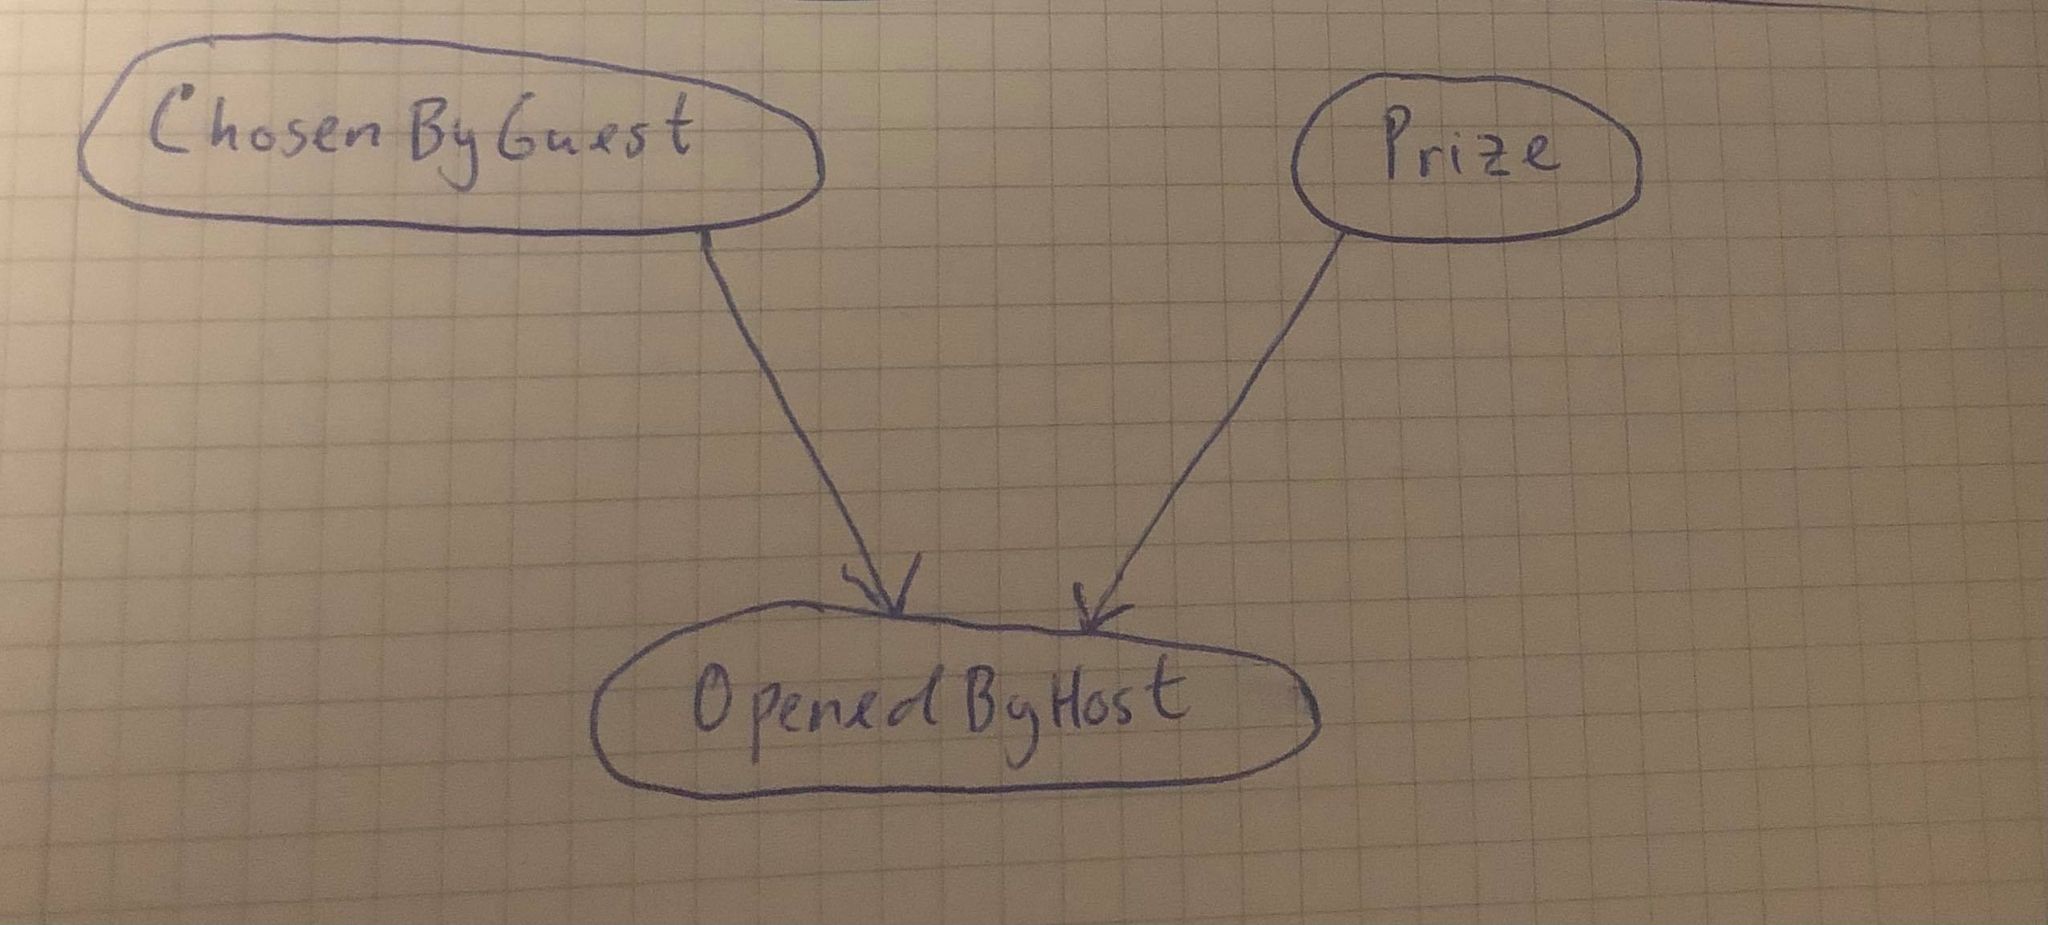 ChosenByGuest
Prize
OpenedByHost